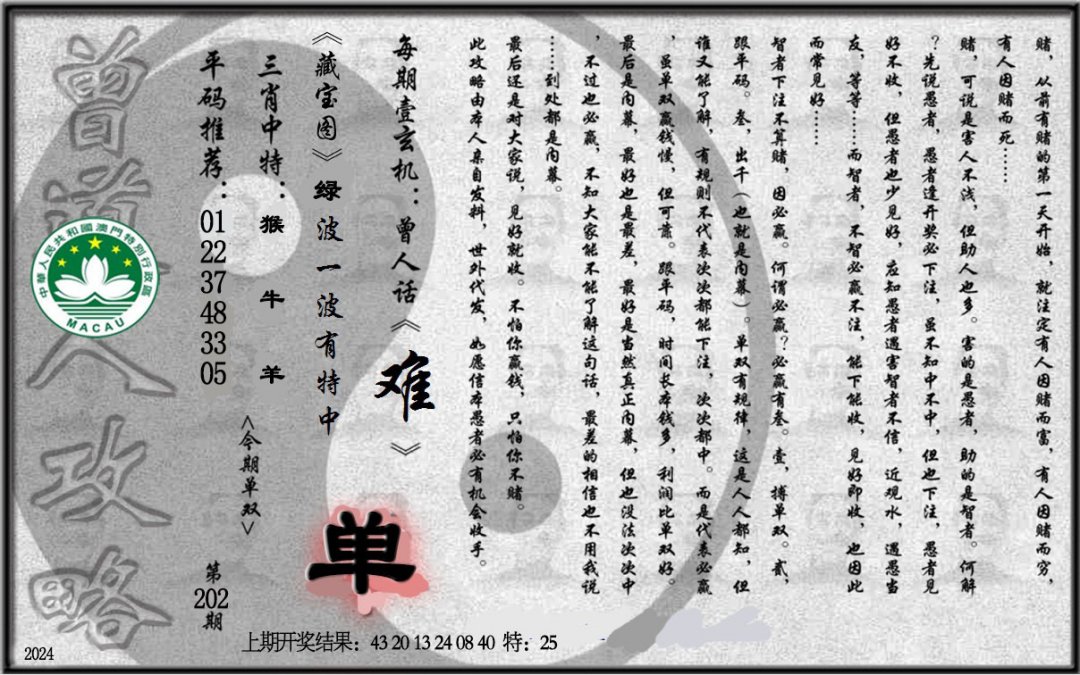 赌，从前有赌的第一天开始，就注定有人因赌而富，有人因赌而穷，
有人因赌而死……
赌，可说是害人不浅，但助人也多。害的是愚者，助的是智者。何解
？先说愚者，愚者逢开奖必下注，虽不知中不中，但也下注，愚者见
好不收，但愚者也少见好，应知愚者遇害智者不信，近观水，遇愚当
友，等等……而智者，不智必赢不注，能下能收，见好即收，也因此
而常见好……
智者下注不算赌，因必赢。何谓必赢？必赢有叁。壹，搏单双。贰，
跟平码。叁，出千（也就是内幕）。单双有规律，这是人人都知，但
谁又能了解，有规则不代表次次都能下注，次次都中。而是代表必赢
，虽单双赢钱慢，但可靠。跟平码，时间长本钱多，利润比单双好。
最后是内幕，最好也是最差，最好是当然真正内幕，但也没法次次中
，不过也必赢，不知大家能不能了解这句话，最差的相信也不用我说
……到处都是内幕。
最后还是对大家说，见好就收。不怕你赢钱，只怕你不赌。
此攻略由本人亲自发料，世外代发，如愿信本愚者必有机会收手。
每期壹玄机：曾人话《难》
《藏宝图》绿波一波有特中
三肖中特：猴 牛 羊
平码推荐：01 22 37 48 33 05
<今期单双>
单
第202期
曾道人攻略
中華人民共和國澳門特別行政區
MACAU
上期开奖结果：43 20 13 24 08 40 特：25
2024